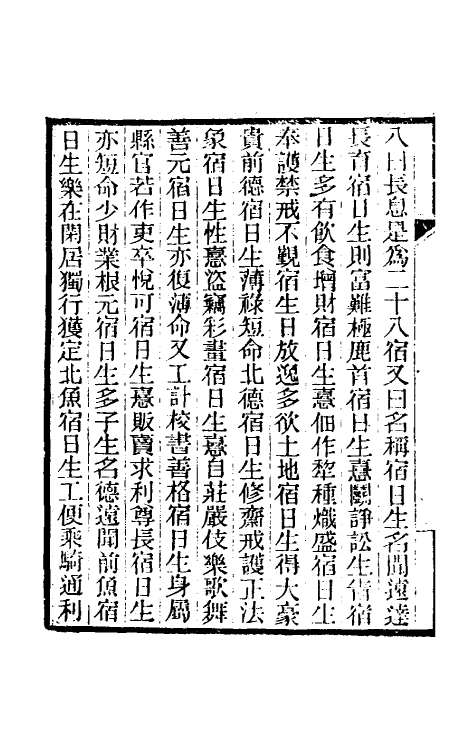 八曰長息是為二十八宿又曰名稱宿日生名聞遠達
長育宿日生則富難極鹿首宿日生憙鬭諍訟生眚宿
日生多有飲食增財宿日生憙佃作犂種熾盛宿日生
奉護禁戒不覲宿生日放逸多欲土地宿日生得大豪
貴前德宿日生薄祿短命北德宿日生修齋戒護正法
象宿日生性憙盜竊彩畫宿日生憙自莊嚴伎樂歌舞
善元宿日生亦復薄命又工計校書善格宿日生身屬
縣官若作吏卒悅可宿日生憙販賣求利尊長宿日生
亦短命少財業根元宿日生多子生名德遠聞前魚宿
日生樂在閑居獨行獲定北魚宿日生工便乘騎通利